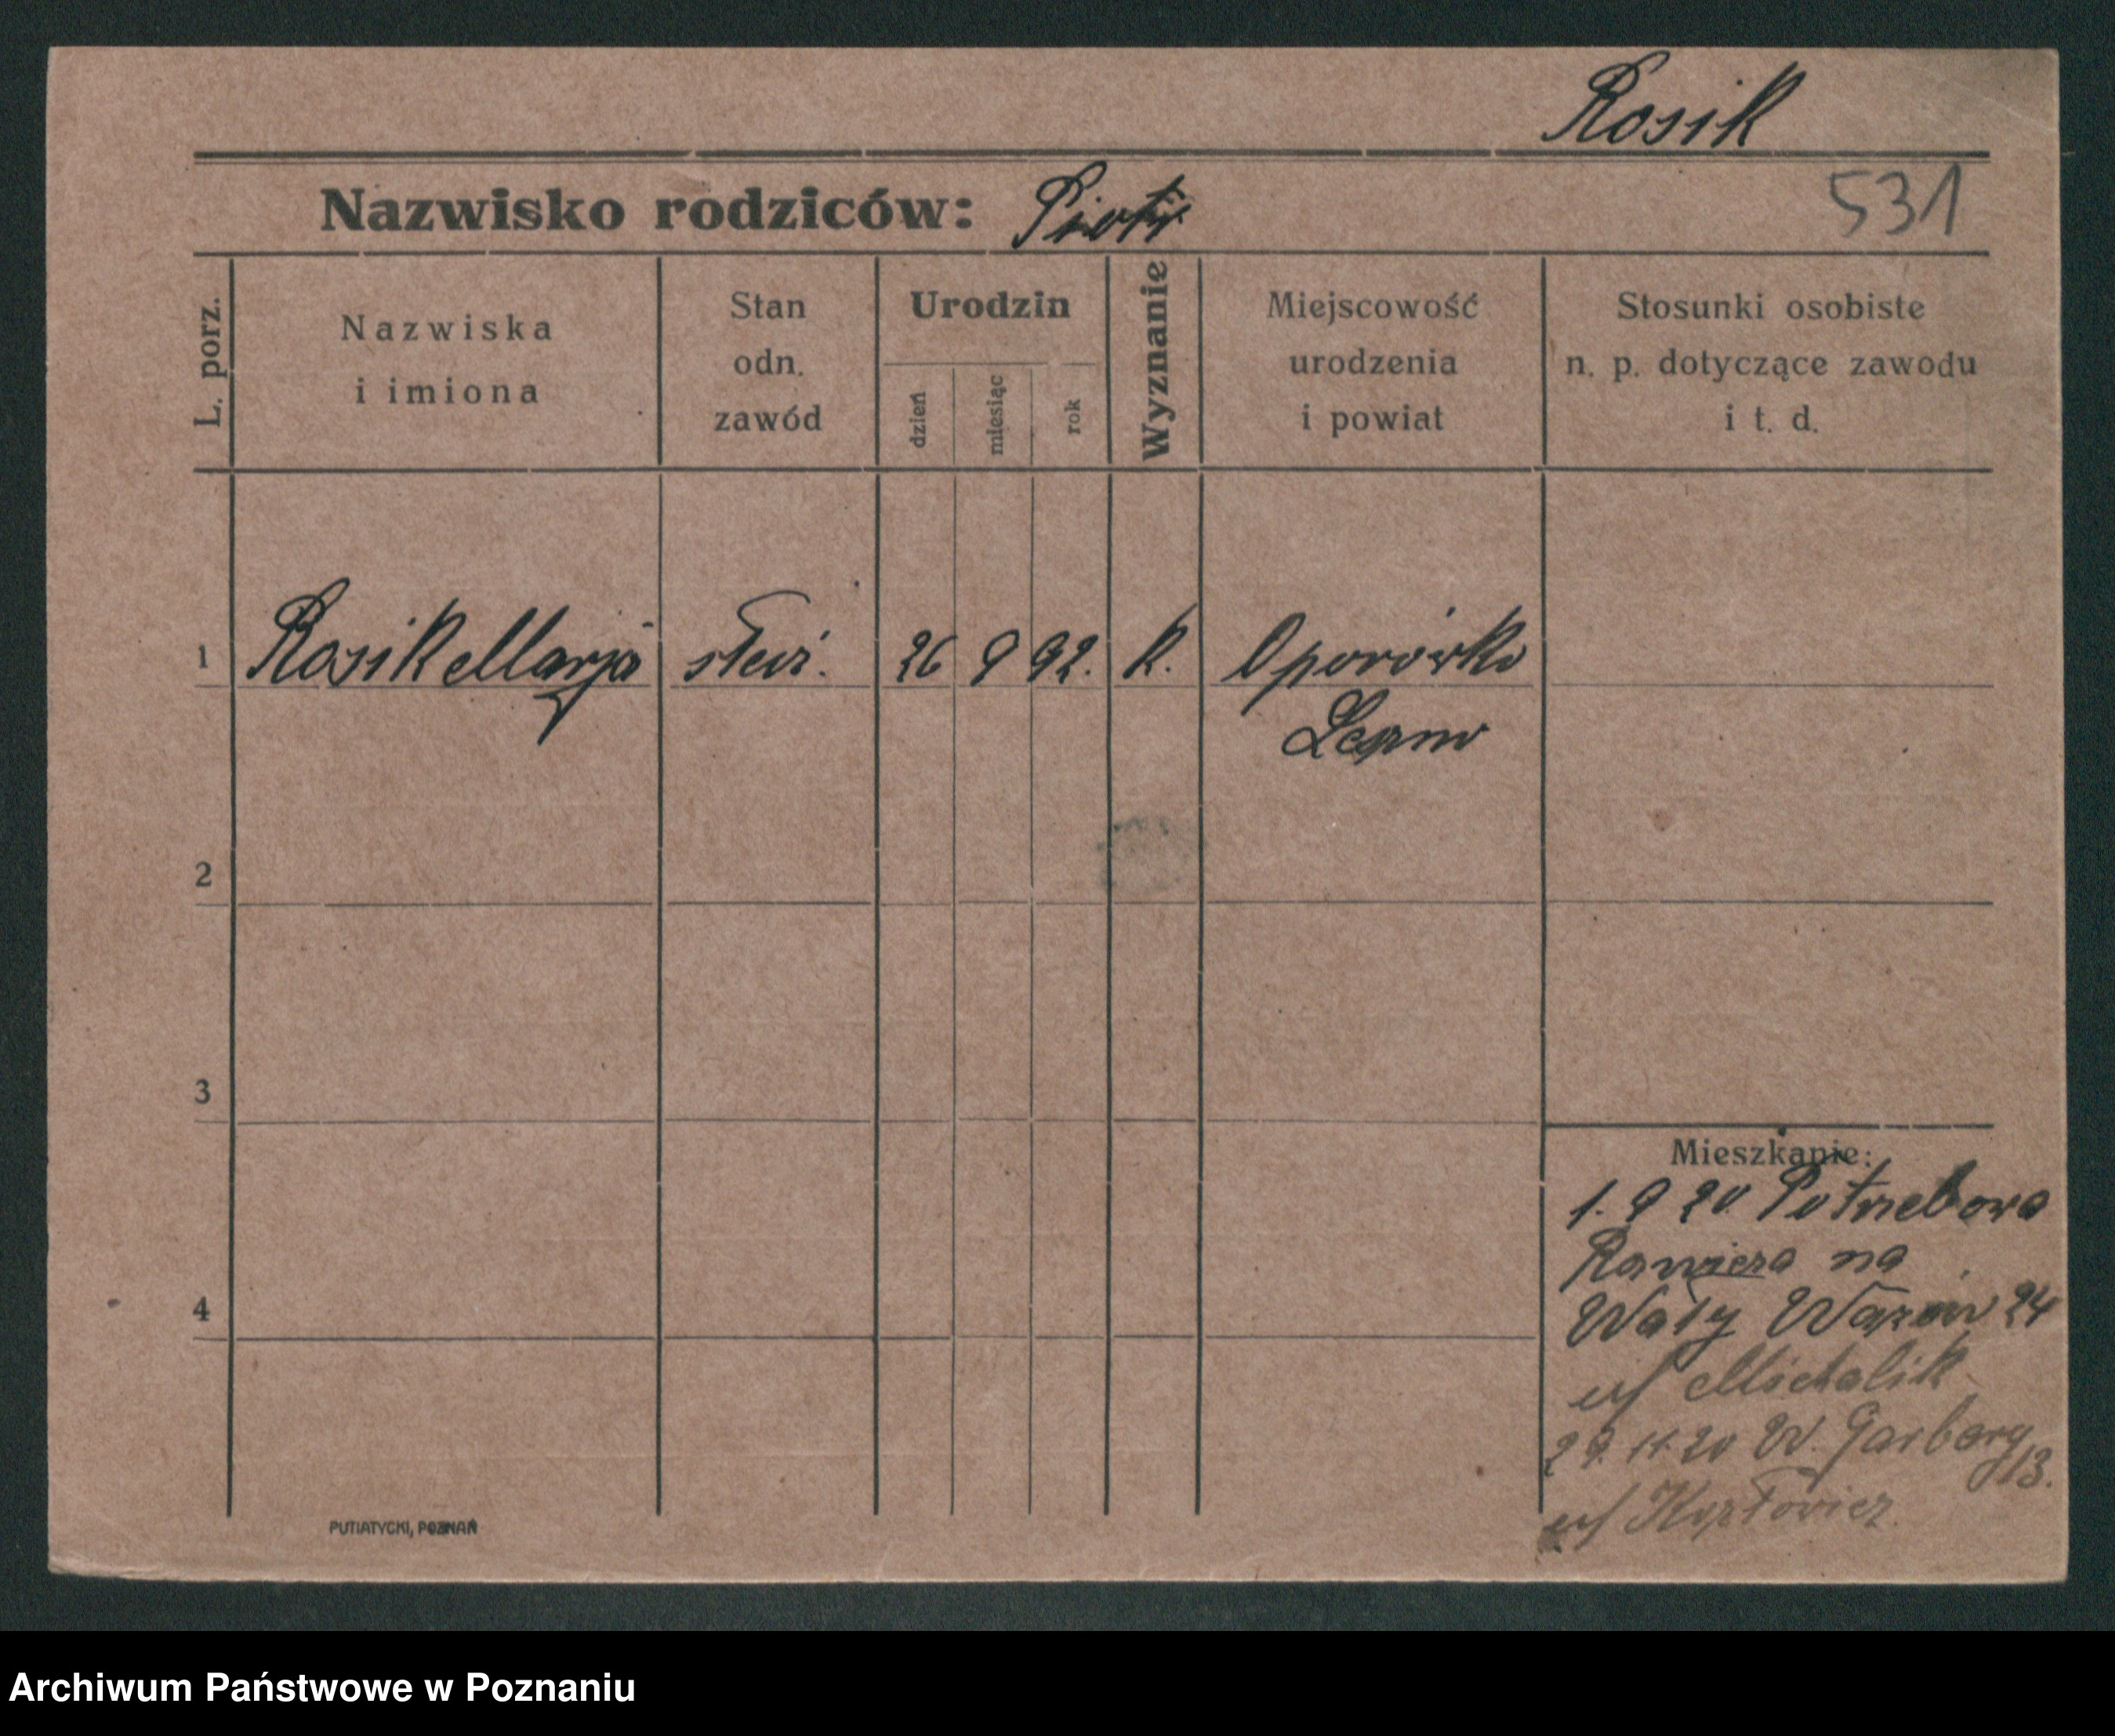 Rosik
Nazwisko rodziców: Piotr
531
L. porz.
Nazwiska
i imiona
Stan
odn.
zawód
Urodzin
dzień
miesiąc
rok
Wyznanie
Miejscowość
urodzenia
i powiat
Stosunki osobiste
n. p. dotyczące zawodu
i t. d.
1 Rosik Marja służ. 26 9 92. k. Oporówko
Leszno
2
3
4
Mieszkanie:
1. 9 20 Potrzebowo
Rawicza na
Wały Wazów 24
u/ Michalik
29. 11. 20 W. Garbary
13.
u/ Kozłowicz
PUTIATYCKI, POZNAŃ
Archiwum Państwowe w Poznaniu